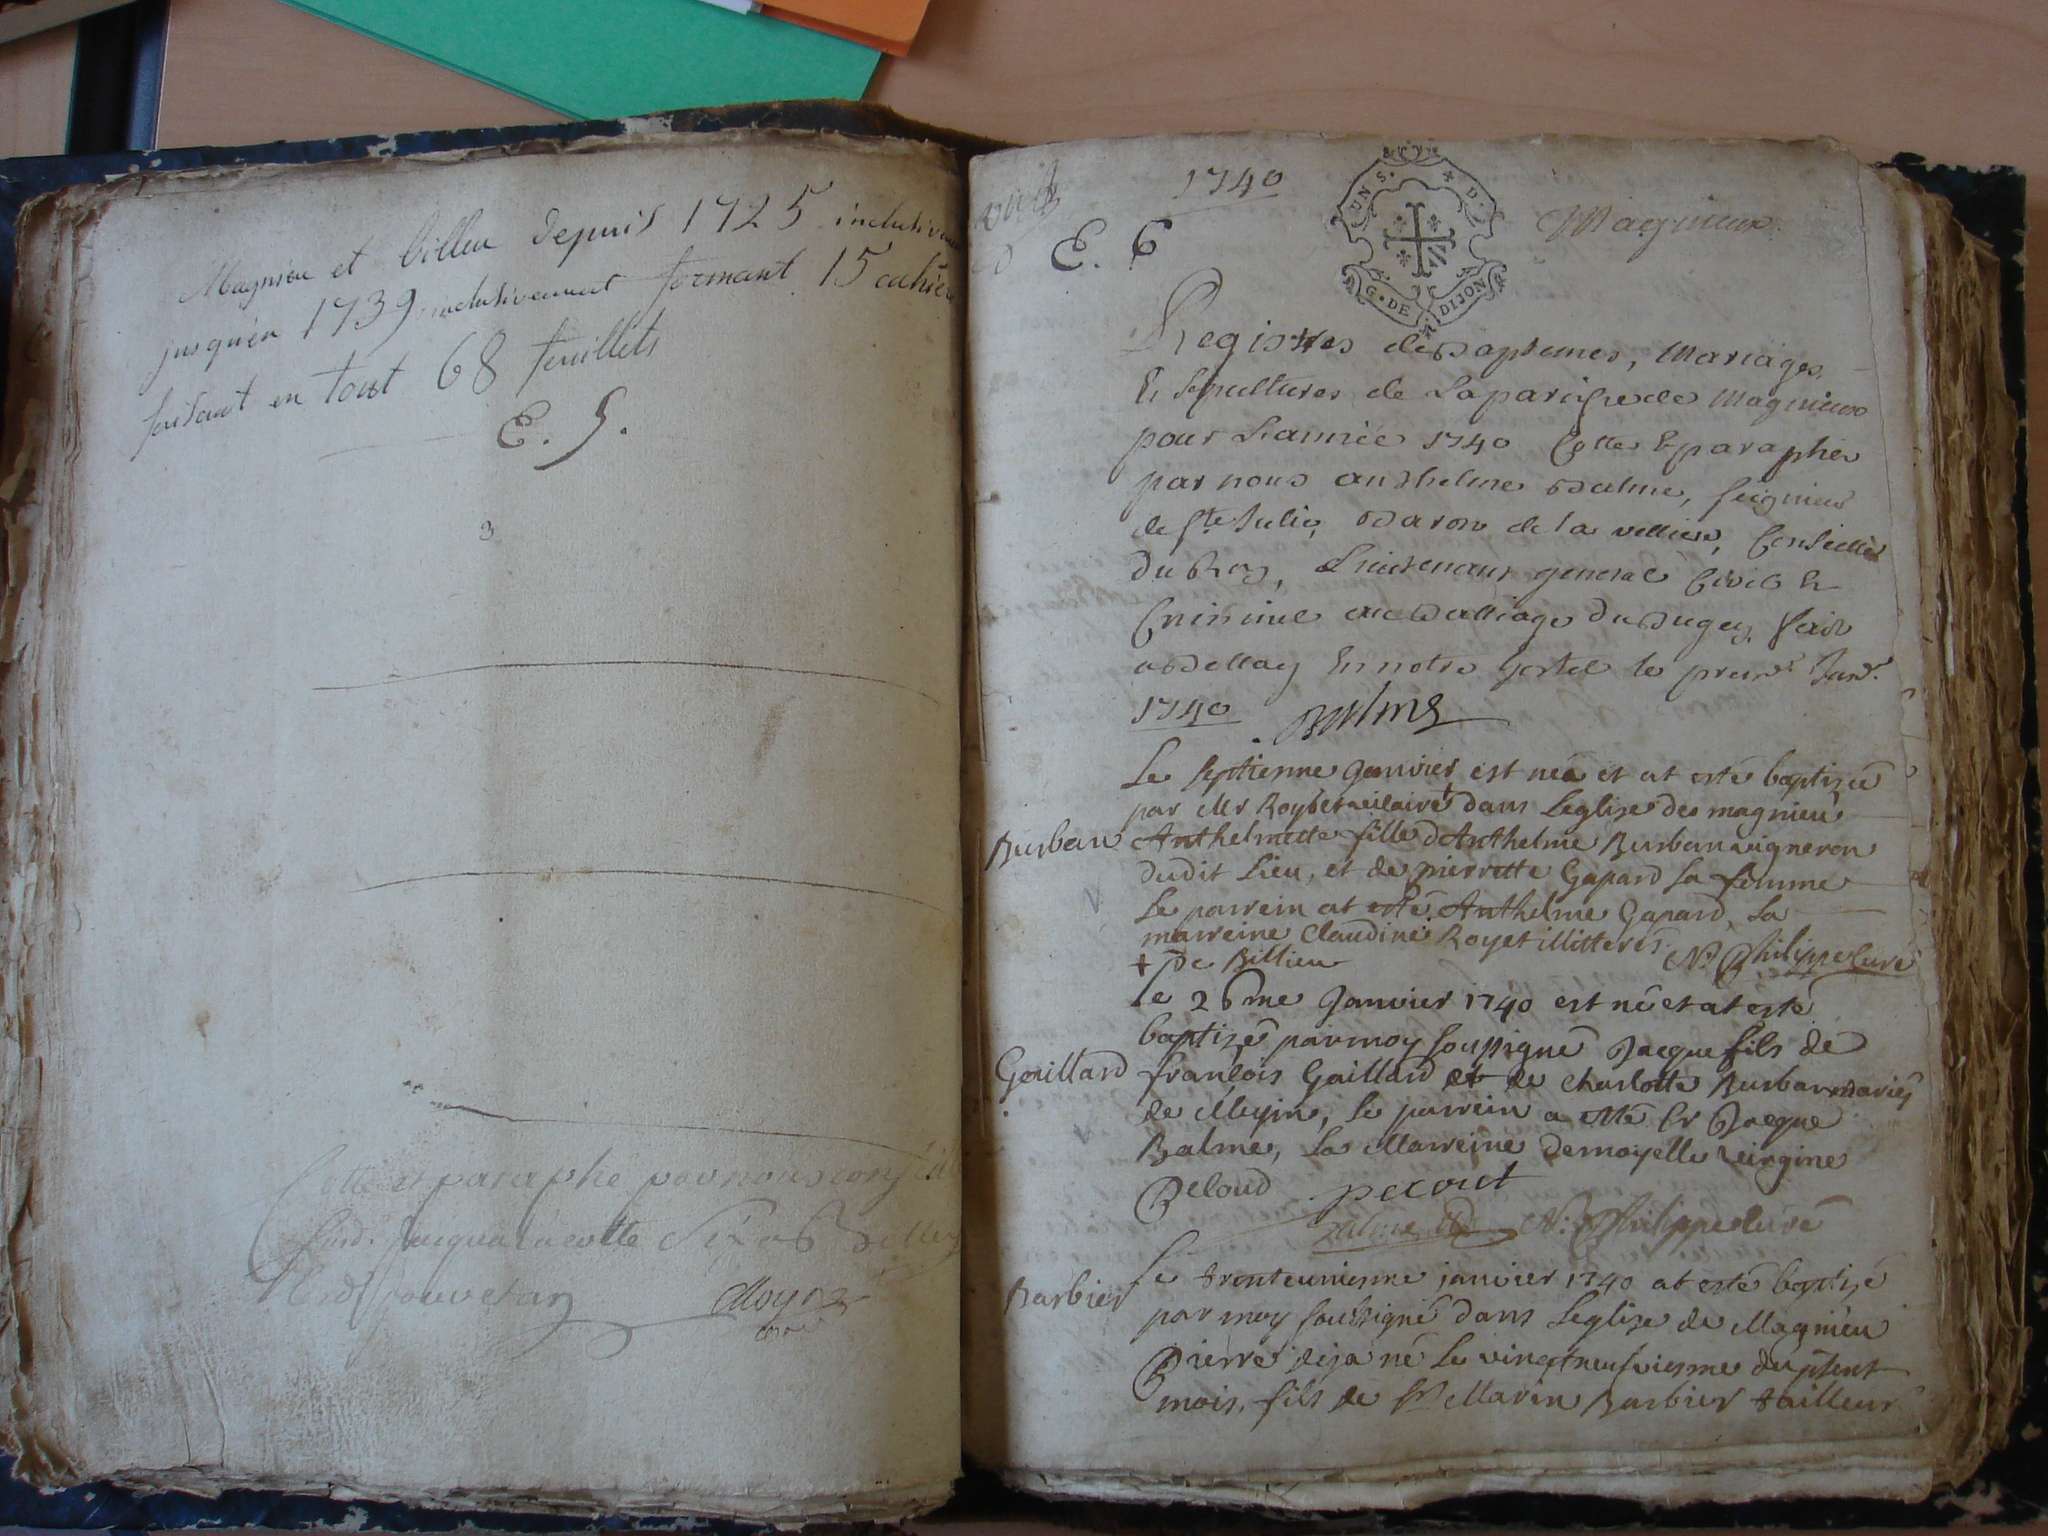 Magnieu et billieu depuis 1725 inclusivem
jusqu'en 1739 inclusivement formant 15 cahiers
faisant en tout 68 feuillets
E. 5.
3
Cotté et paraphé par nous
jusqua la cotte Six
1740
E. 6
UNS. D. G. DE DIJON
Magnieux
Registres de Baptemes, Mariages,
Et Sepultures de La parroisse de Magnieux
pour L'année 1740 Cotté Et paraphé
par nous anthelme Balme, seigneur
de Ste Julie, Baron de la velliere, Conseiller
Du Roy, Lieutenant general Civil Et
Criminel au Balliage Du Bugey, fait
a Bellay En notre hostel le premr. Janr.
1740 Balme
Le septienme Janvier est née et at esté baptizée
par Mr Roybet vicaire dans L'eglize de magnieu
Burban Anthelmette fille d'Anthelme Burban vigneron
dudit Lieu, et de pierrette Gapard sa femme
Le parrein at esté Anthelme Gapard, la
marreine Claudine Royet illitterés. N: Philippe curé
+ De Billieu
le 26me Janvier 1740 est né et at esté
baptizé par moy soussigné Jacque fils de
Gaillard françois Gaillard et de Charlotte Burban mariés
de Meyin, le parrein a esté Sr Jacque
Balme, La Marreine demoyelle virgine
Beloud pecout
Balme N: Philippe curé
Barbier Le trenteunienme janvier 1740 at esté baptizé
par moy soussigné dans L'eglize de Magnieu
Pierre deja né Le vingtneufviesme du pñt
mois, fils de Sr Marin Barbier tailleur